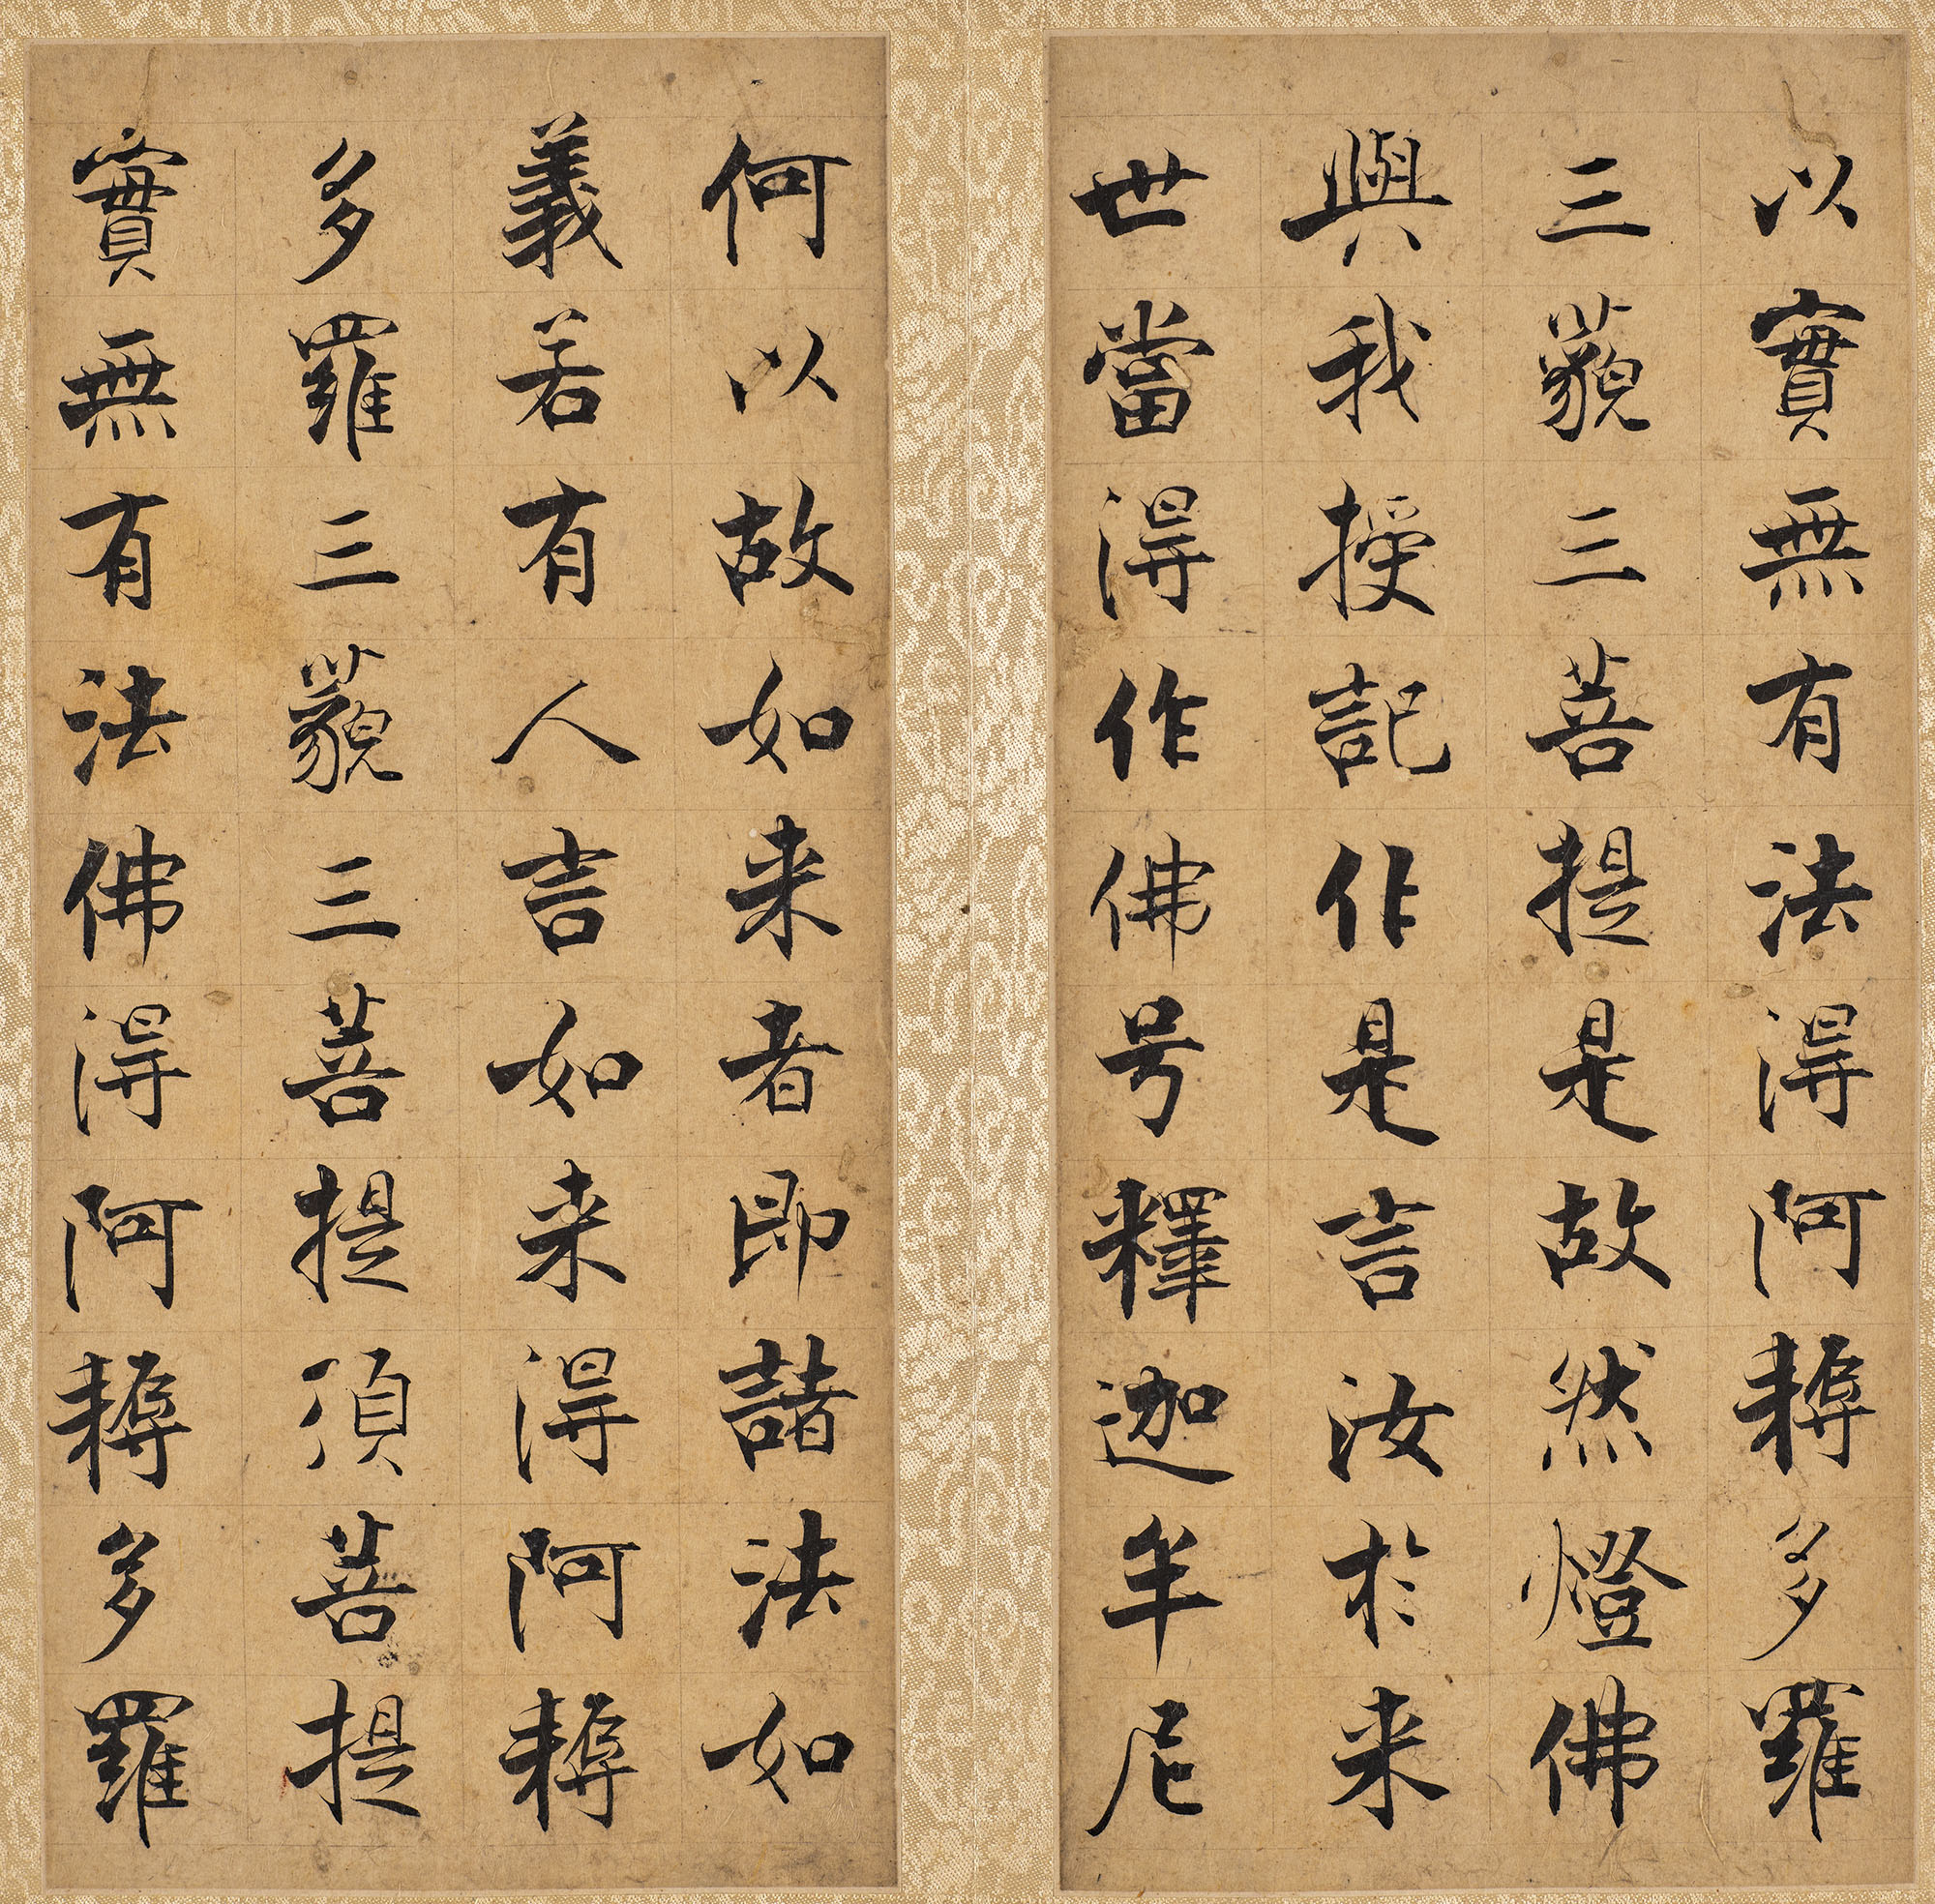 以實無有法得阿耨多羅
三藐三菩提是故然燈佛
與我授記作是言汝於来
世當得作佛号釋迦牟尼
何以故如来者即諸法如
義若有人言如来得阿耨
多羅三藐三菩提須菩提
實無有法佛得阿耨多羅